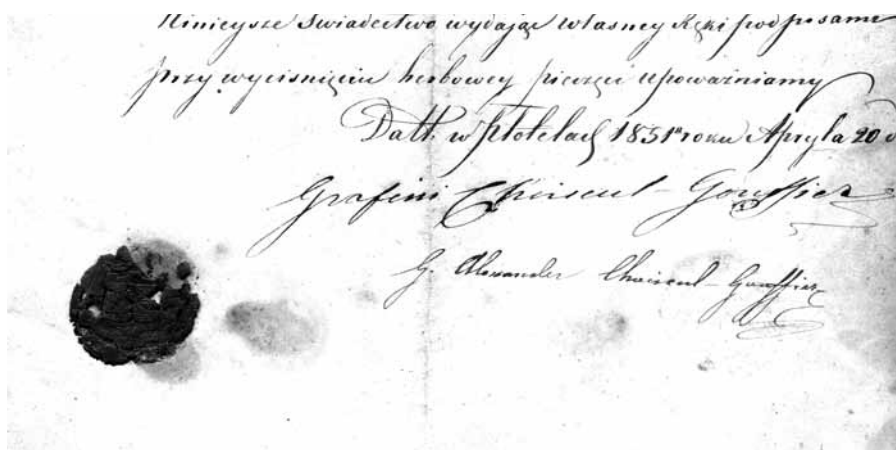 Ninieysze Swiadectwo wydając własney Ręki podpisame
przy wyciśnięciu herbowey pieczęci upoważniamy
Datt. w Płotelach 1851º roku Apryla 20 d
Grafini Choiseul-Gouffier
G. Alexander Choiseul-Gouffier